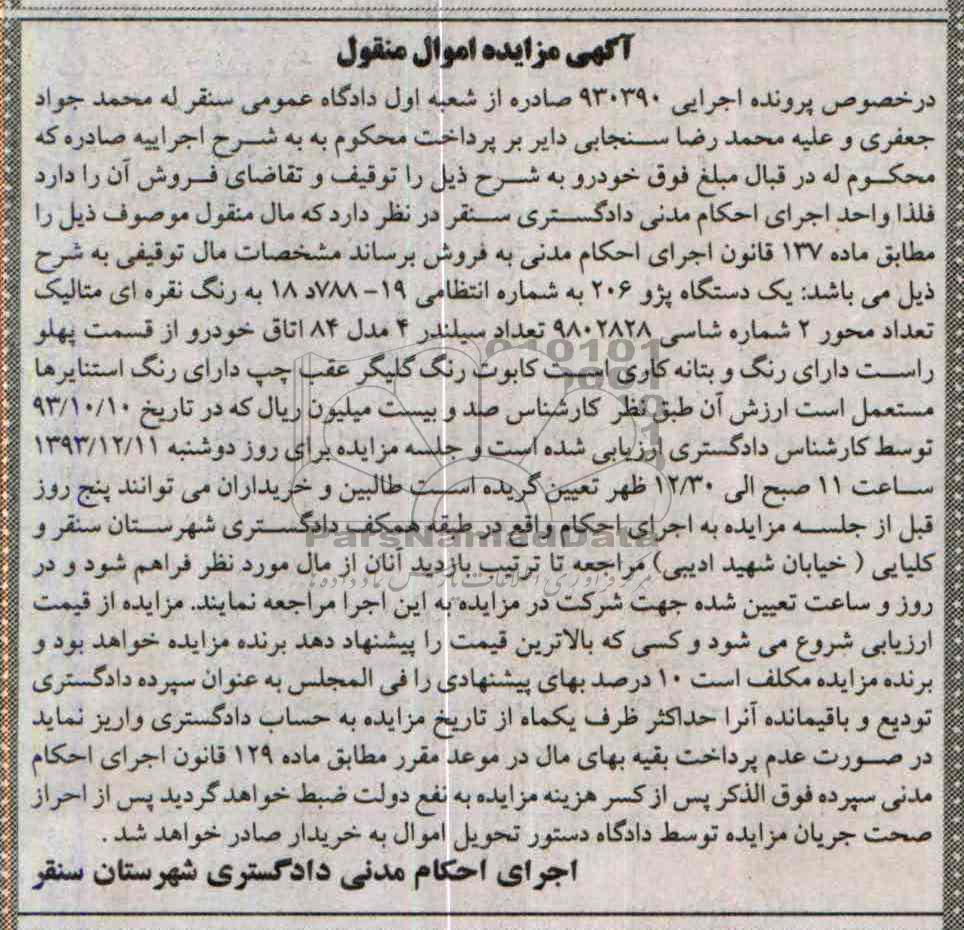 آگهی مزایده اموال منقول
درخصوص پرونده اجرایی ۹۳۰۳۹۰ صادره از شعبه اول دادگاه عمومی سنقر له محمد جواد
جعفری و علیه محمد رضا سنجابی دایر بر پرداخت محکوم به به شرح اجراییه صادره که
محکوم له در قبال مبلغ فوق خودرو به شرح ذیل را توقیف و تقاضای فروش آن را دارد
فلذا واحد اجرای احکام مدنی دادگستری سنقر در نظر دارد که مال منقول موصوف ذیل را
مطابق ماده ۱۳۷ قانون اجرای احکام مدنی به فروش برساند مشخصات مال توقیفی به شرح
ذیل می باشد: یک دستگاه پژو ۲۰۶ به شماره انتظامی ۱۹- ۷۸۸د ۱۸ به رنگ نقره ای متالیک
تعداد محور ۲ شماره شاسی ۹۸۰۲۸۲۸ تعداد سیلندر ۴ مدل ۸۴ اتاق خودرو از قسمت پهلو
راست دارای رنگ و بتانه کاری است کابوت رنگ گلیگر عقب چپ دارای رنگ استنایرها
مستعمل است ارزش آن طبق نظر کارشناس صد و بیست میلیون ریال که در تاریخ ۹۳/۱۰/۱۰
توسط کارشناس دادگستری ارزیابی شده است و جلسه مزایده برای روز دوشنبه ۱۳۹۳/۱۲/۱۱
ساعت ۱۱ صبح الی ۱۲/۳۰ ظهر تعیین گریده است طالبین و خریداران می توانند پنج روز
قبل از جلسه مزایده به اجرای احکام واقع در طبقه همکف دادگستری شهرستان سنقر و
کلیایی ( خیابان شهید ادیبی) مراجعه تا ترتیب بازدید آنان از مال مورد نظر فراهم شود و در
روز و ساعت تعیین شده جهت شرکت در مزایده به این اجرا مراجعه نمایند. مزایده از قیمت
ارزیابی شروع می شود و کسی که بالاترین قیمت را پیشنهاد دهد برنده مزایده خواهد بود و
برنده مزایده مکلف است ۱۰ درصد بهای پیشنهادی را فی المجلس به عنوان سپرده دادگستری
تودیع و باقیمانده آنرا حداکثر ظرف یکماه از تاریخ مزایده به حساب دادگستری واریز نماید
در صورت عدم پرداخت بقیه بهای مال در موعد مقرر مطابق ماده ۱۲۹ قانون اجرای احکام
مدنی سپرده فوق الذکر پس از کسر هزینه مزایده به نفع دولت ضبط خواهد گردید پس از احراز
صحت جریان مزایده توسط دادگاه دستور تحویل اموال به خریدار صادر خواهد شد .
اجرای احکام مدنی دادگستری شهرستان سنقر
ParsNamadData